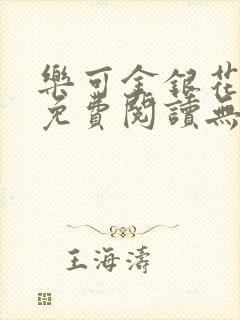 樂可金銀花
免費閱讀無
王海濤